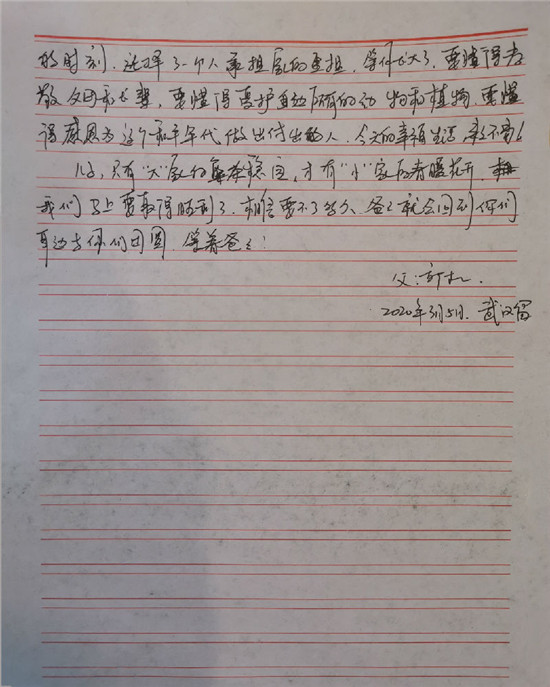 的时刻，选择了一个人承担家的重担，等你长大了，要懂得孝
敬父母和长辈，要懂得爱护身边所有的动物和植物，要懂
得感恩为这个和平年代做出付出的人，今天的幸福生活来之不易！
儿子，只有“大”家的稳固，才有“小”家的春暖花开，
我们马上要取得胜利了，相信要不了多久，爸爸就会回到你们
身边与你们团圆，等着爸爸！
父：
2020年3月5日. 武汉留